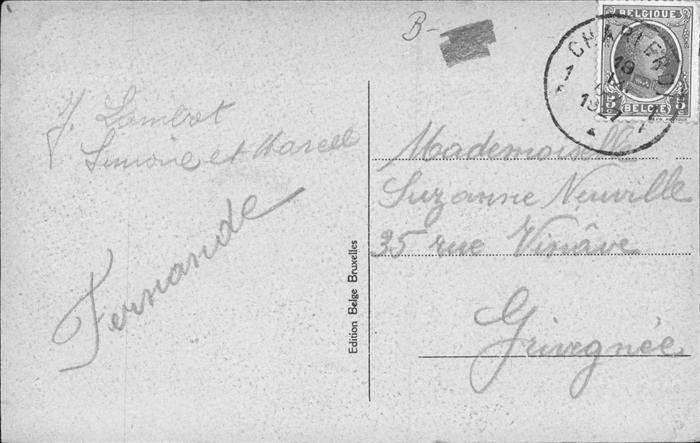 B-
BELGIQUE
5 5
BELGIË
CHARLEROI
19
1
1
J. Lambot
Simone et Marcel
Fernande
Edition Belge Bruxelles
Mademoiselle
Suzanne Neuville
35 rue Vinâve
Grivegnée